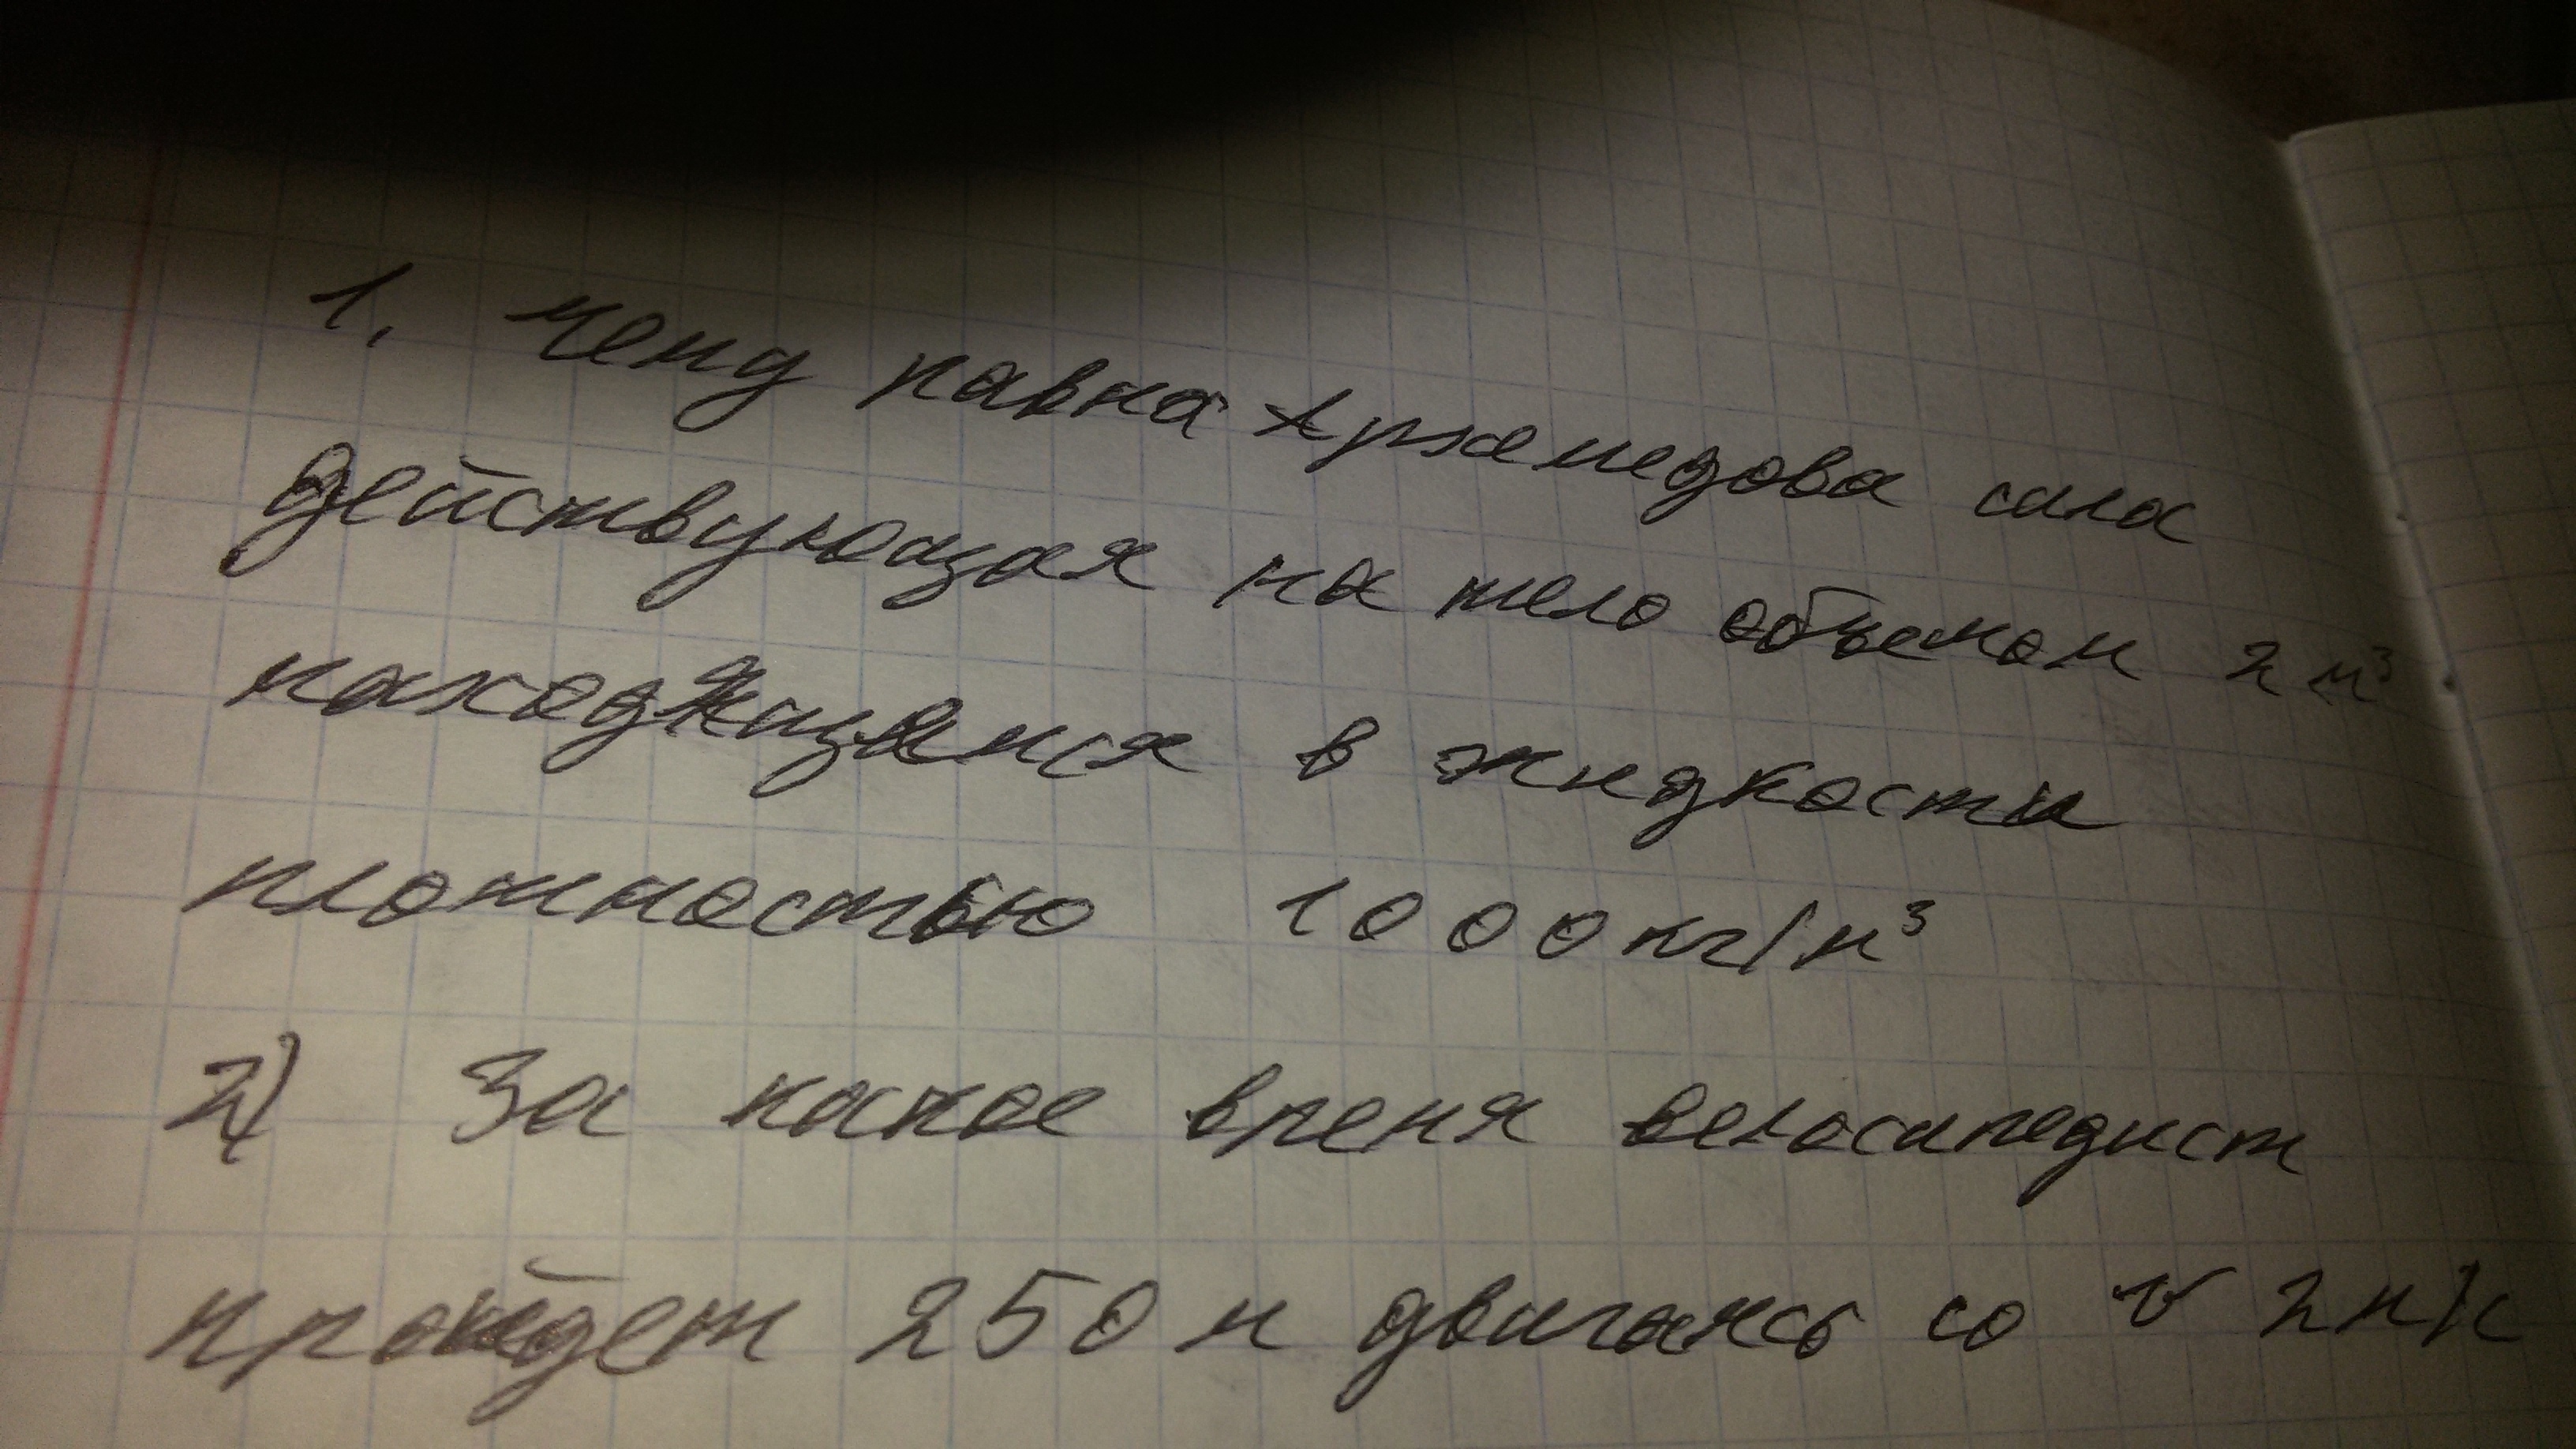 1. чему равна Архемедова сила
действующая на тело объемом 2 м³
находящимся в жидкости
плотностью 1000 кг/м³
2) За какое время велосипедист
пройдет 250 м двигаясь со v 2 м/с